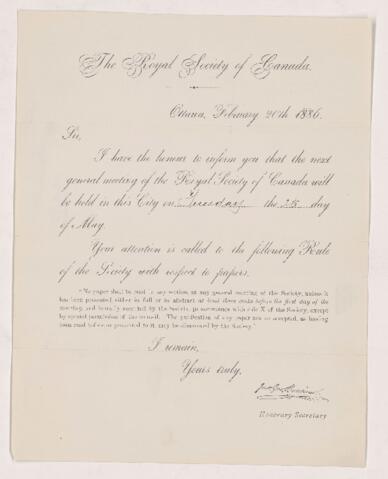 The Royal Society of Canada.
Ottawa, February 20th 1886.
Sir,
I have the honour to inform you that the next
general meeting of the Royal Society of Canada will
be held in this City on Tuesday the 25th day
of May.
Your attention is called to the following Rule
of the Society with respect to papers.
"No paper shall be read in any section at any general meeting of the Society, unless it
has been presented either in full or in abstract at least three weeks before the first day of the
meeting, and formally accepted by the Society, in accordance with rule X of the Society, except
by special permission of the council. The publication of any paper not so accepted, as having
been read before or presented to it, may be disavowed by the Society."
I remain,
Yours truly,
Honorary Secretary